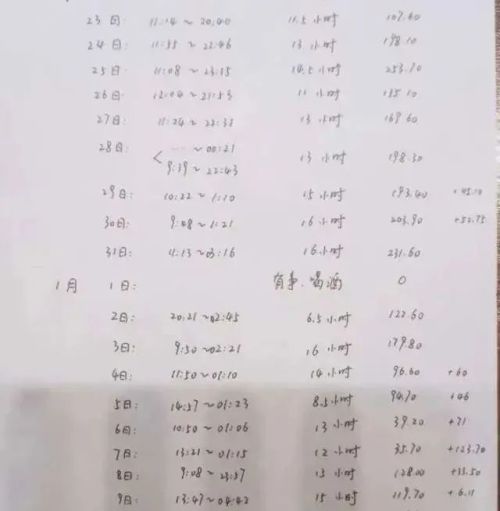 23日: 11:14~20:40 11.5小时 107.60
24日: 11:35~22:46 13小时 198.10
25日: 11:08~23:15 14.5小时 253.70
26日: 12:04~21:53 11小时 135.10
27日: 11:24~22:33 13小时 169.60
28日: ~00:21
9:39~22:43 13小时 198.30
29日: 10:22~1:10 15小时 193.40
30日: 9:08~1:21 16小时 203.90 +52.75
31日: 03:16 16小时 231.60
1月 1日: 有事.喝酒 0
2日: 20:21~02:45 6.5小时 122.60
3日: 9:50~02:21 16小时 179.80
4日: 11:50~01:10 14小时 96.60 +60
5日: 14:57~01:23 8.5小时 94.70 +46
6日: 10:50~01:06 13小时 39.20 +71
7日: 13:21~01:15 12小时 35.70 +123.70
8日: 9:08~23:57 13小时 128.00 +33.50
9日: 13:47~04:42 15小时 119.70 +6.11